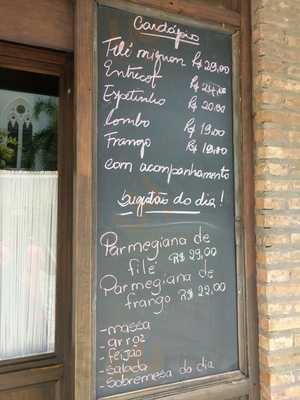 Cardápio
Filé mignon R$ 29,00
Entrecot R$ 24,00
Espetinho R$ 20,00
Lombo R$ 19,00
Frango R$ 18,00
com acompanhamento
Sugestão do dia!
Parmegiana de
filé R$ 29,00
Parmegiana de
frango R$ 22,00
-massa
-arroz
-feijão
-salada
-sobremesa do dia